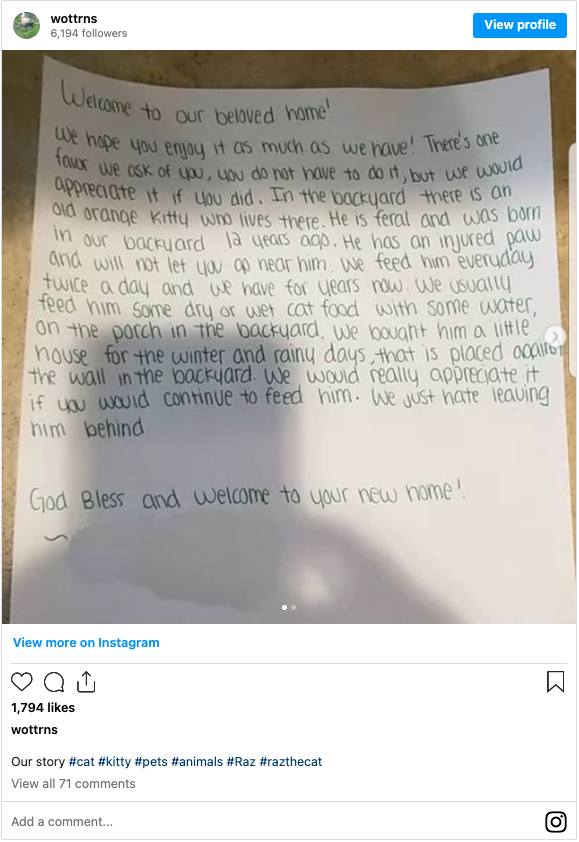 wottrns
6,194 followers
View profile
Welcome to our beloved home!
We hope you enjoy it as much as we have! There's one
favor we ask of you, you do not have to do it, but we would
appreciate it if you did. In the backyard there is an
old orange kitty who lives there. He is feral and was born
in our backyard 12 years ago. He has an injured paw
and will not let you go near him. We feed him everyday
twice a day and we have for years now. We usually
feed him some dry or wet cat food with some water,
on the porch in the backyard. We bought him a little
house for the winter and rainy days, that is placed against
the wall in the backyard. We would really appreciate it
if you would continue to feed him. We just hate leaving
him behind
God Bless and welcome to your new home!
~
View more on Instagram
1,794 likes
wottrns
Our story #cat #kitty #pets #animals #Raz #razthecat
View all 71 comments
Add a comment...